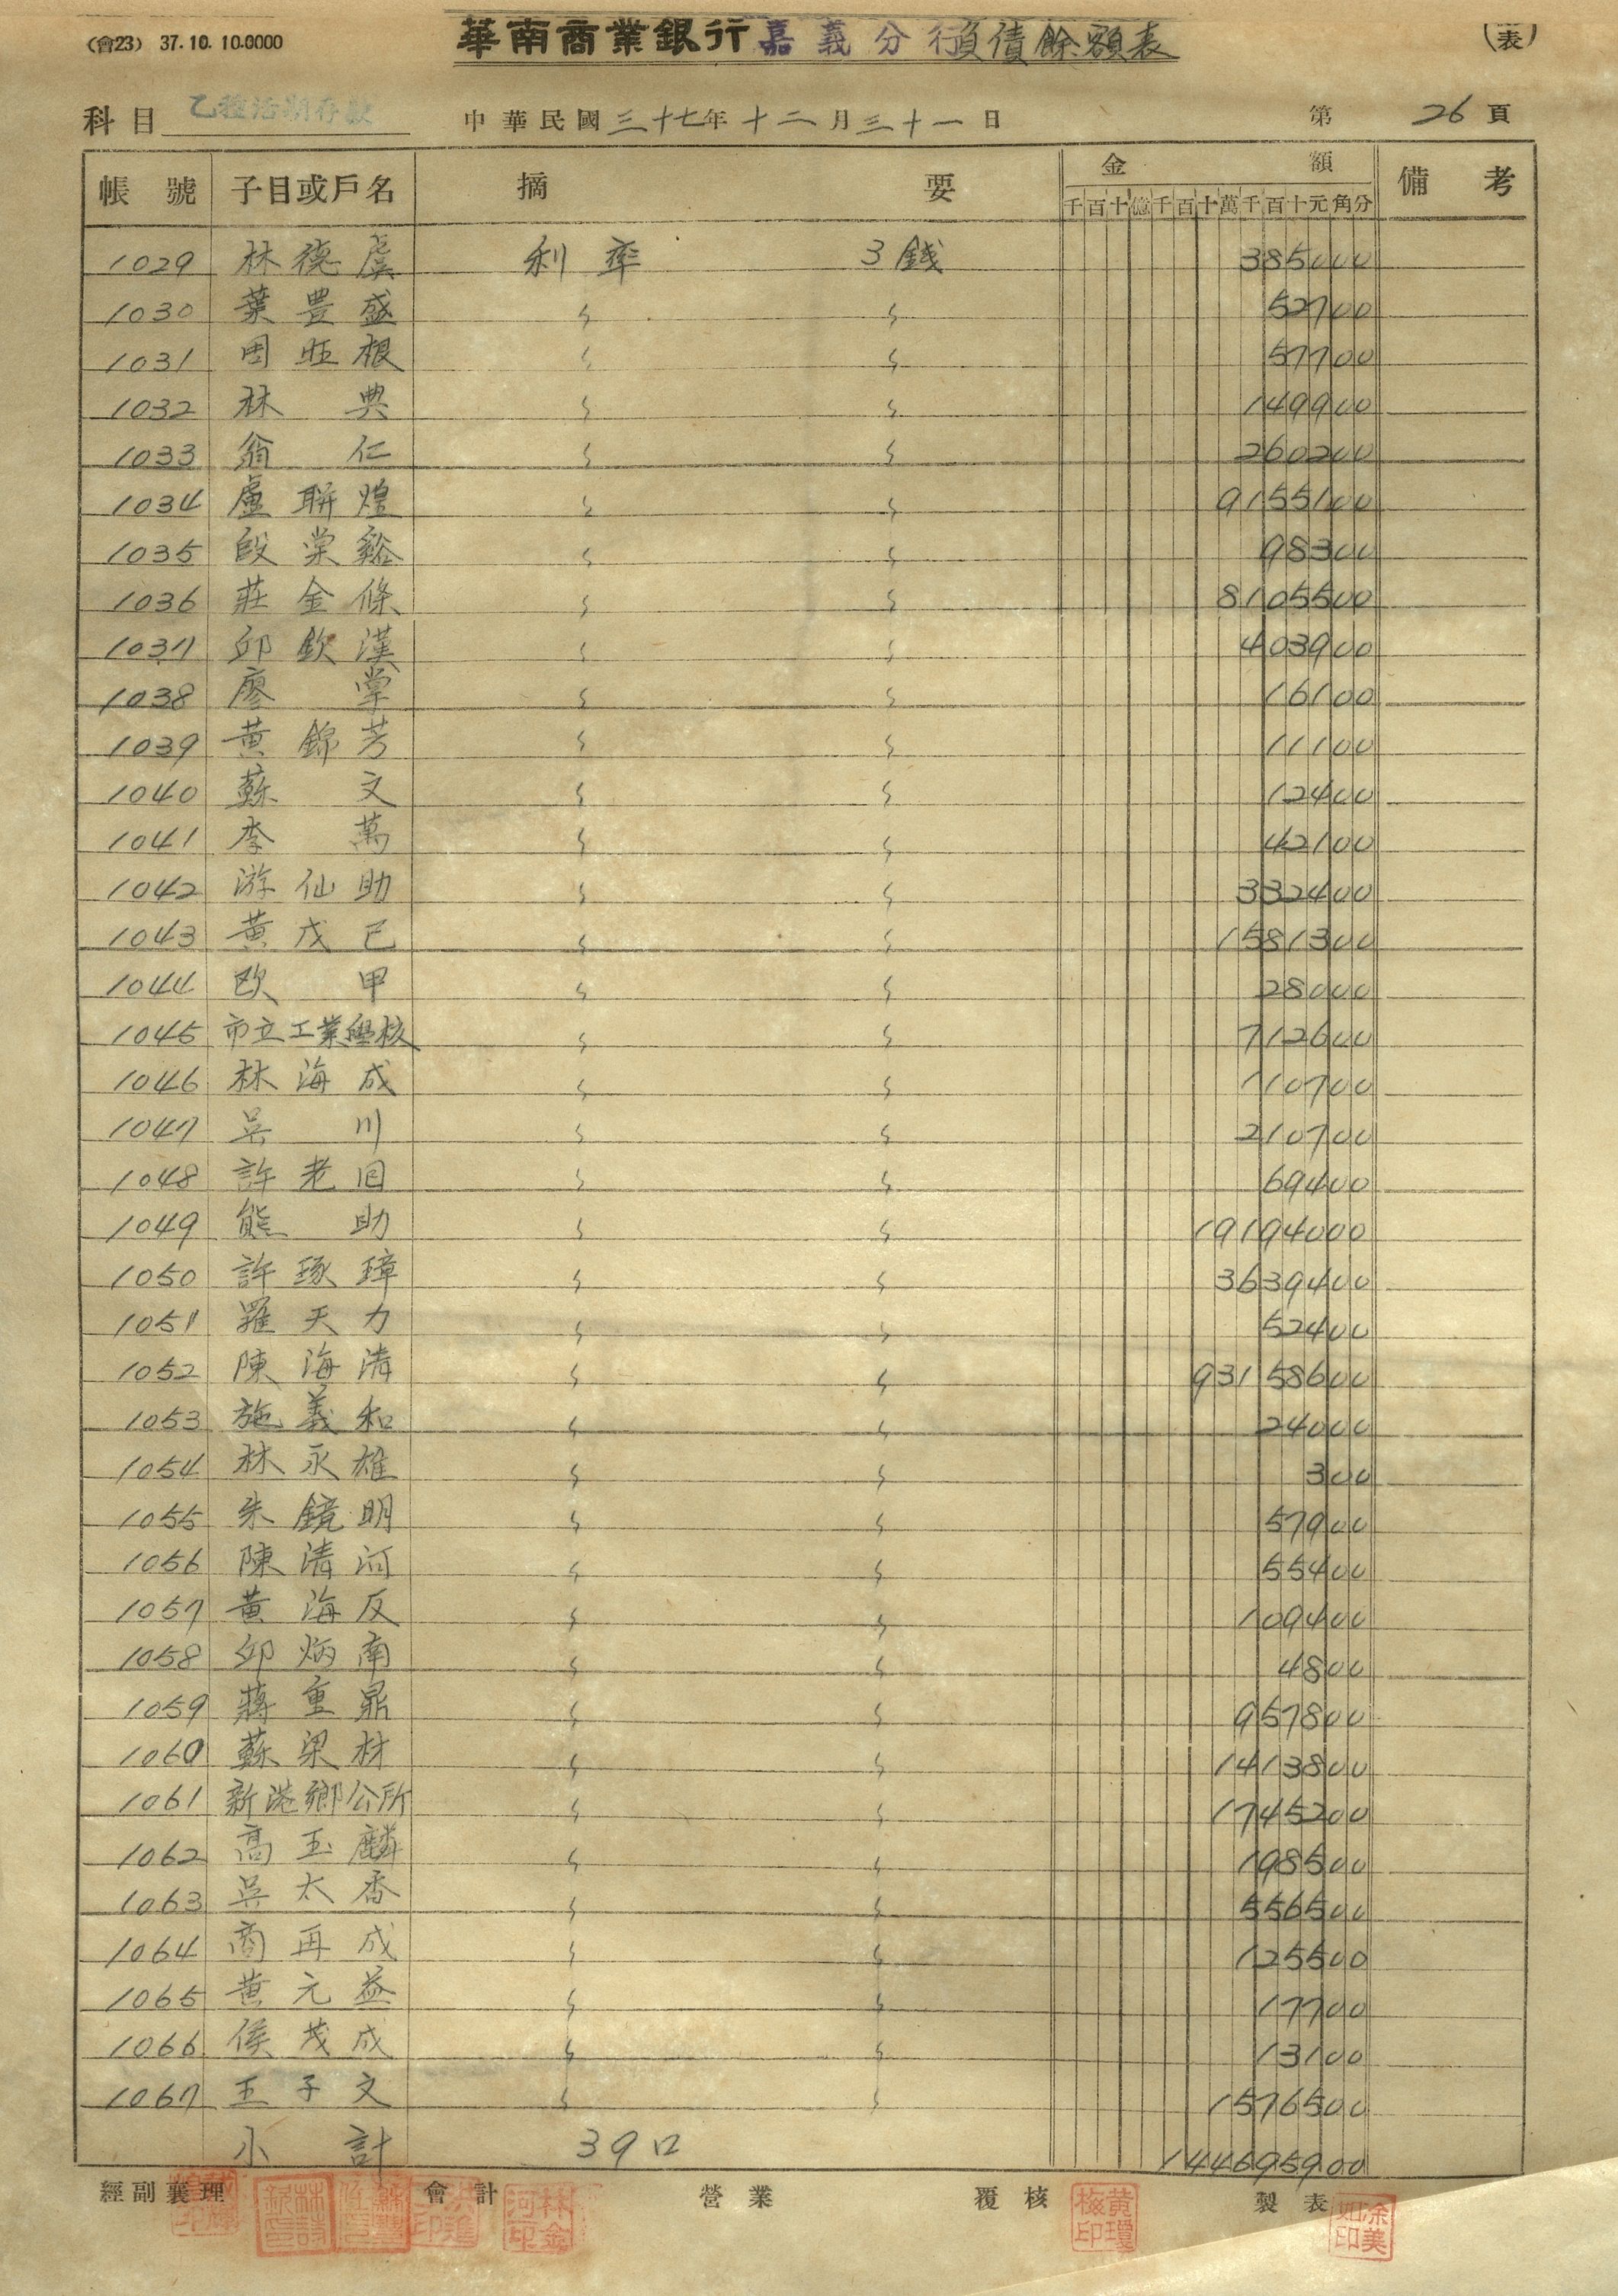 (會23) 37.10.10.0000
華南商業銀行嘉義分行負債餘額表
(表)
科目 乙種活期存款 中華民國三十七年十二月三十一日 第26頁
帳號 子目或戶名 摘要 金額 備考
千百十億千百十萬千百十元角分
1029 林德虞 利率 3錢 385000
1030 葉豊盛 〃 〃 52700
1031 周旺根 〃 〃 57700
1032 林典 〃 〃 149900
1033 翁仁 〃 〃 260200
1034 盧聯煌 〃 〃 9155100
1035 段棠谿 〃 〃 98300
1036 莊金條 〃 〃 8105500
1037 邱欽漢 〃 〃 403900
1038 廖掌 〃 〃 16100
1039 黃錦芳 〃 〃 11100
1040 蘇文 〃 〃 12400
1041 李萬 〃 〃 42100
1042 游仙助 〃 〃 332400
1043 黃戊己 〃 〃 1581300
1044 欧甲 〃 〃 28000
1045 市立工業學校 〃 〃 712600
1046 林海成 〃 〃 110700
1047 吳川 〃 〃 210700
1048 許老回 〃 〃 69400
1049 熊助 〃 〃 19194000
1050 許琢璋 〃 〃 3639400
1051 羅天力 〃 〃 52400
1052 陳海清 〃 〃 93158600
1053 施義和 〃 〃 24000
1054 林永雄 〃 〃 300
1055 朱鏡明 〃 〃 57900
1056 陳清河 〃 〃 55400
1057 黃海反 〃 〃 109400
1058 邱炳南 〃 〃 4800
1059 蔣重鼎 〃 〃 957800
1060 蘇梁材 〃 〃 1413800
1061 新港鄉公所 〃 〃 1745200
1062 高玉麟 〃 〃 198500
1063 吳太香 〃 〃 556500
1064 商再成 〃 〃 125500
1065 黃元益 〃 〃 17700
1066 侯茂成 〃 〃 13100
1067 王子文 〃 〃 1576500
小計 39口 144695900
經副襄理 會計 營業 覆核 製表
林金河印
黃瓊梅印
涂美如印